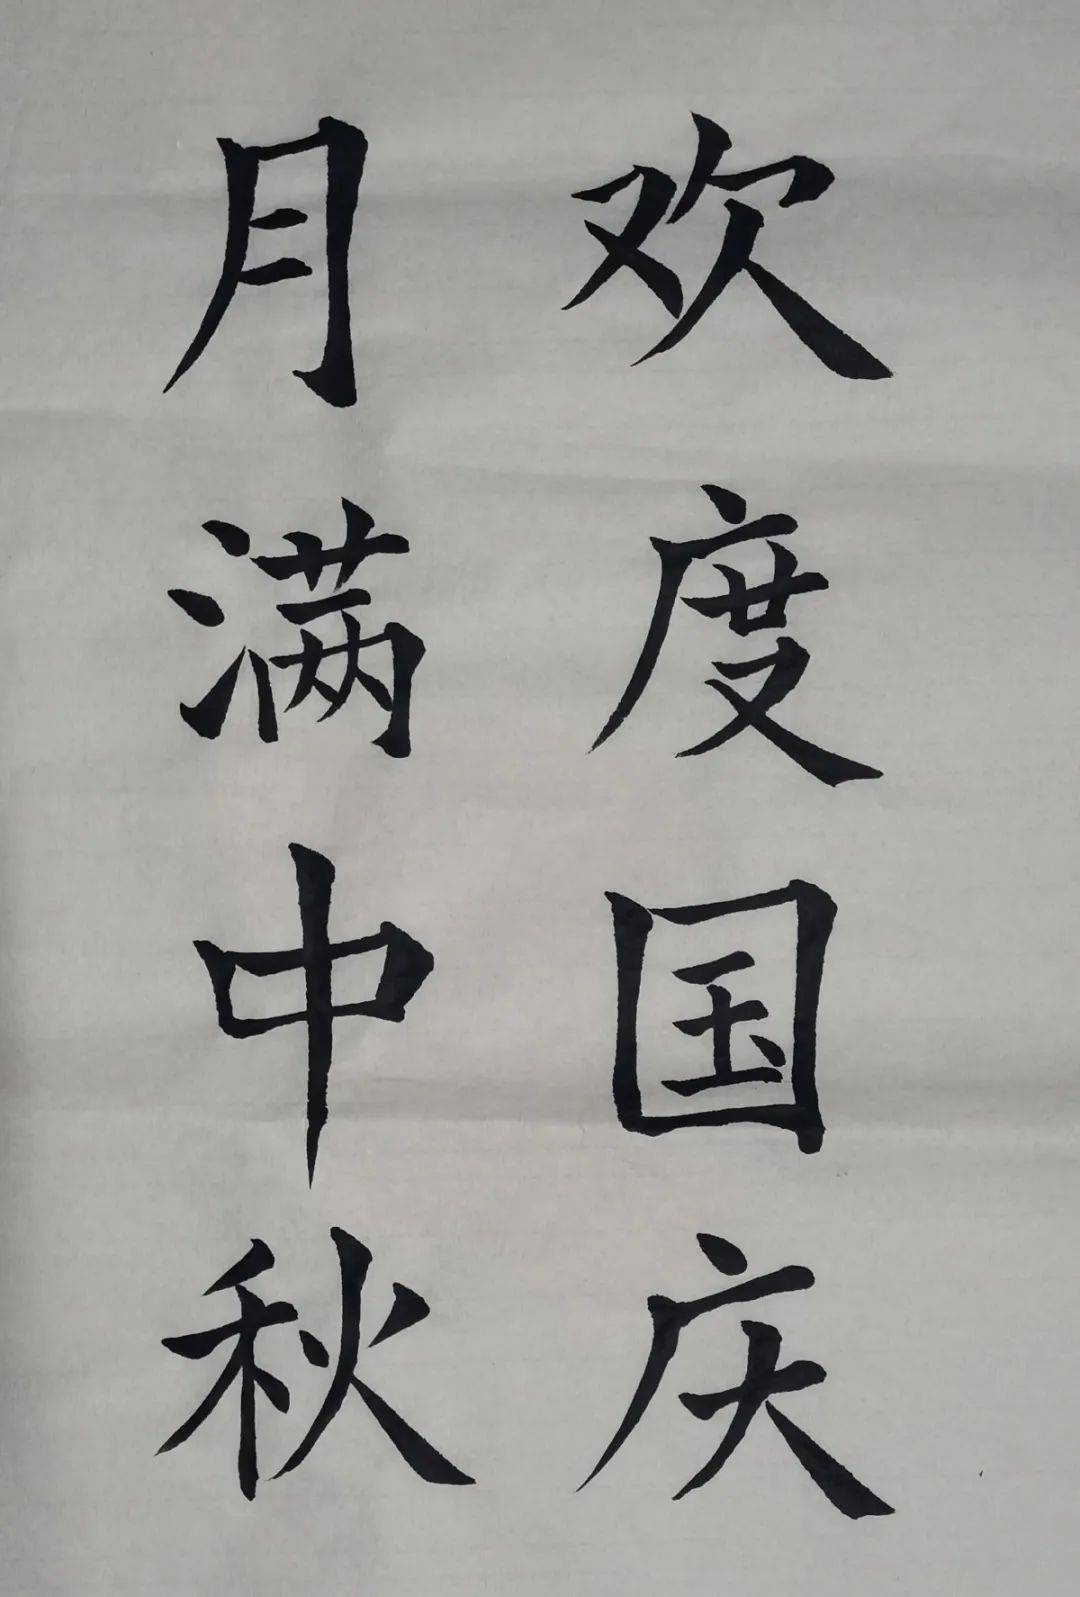 欢度国庆
月满中秋